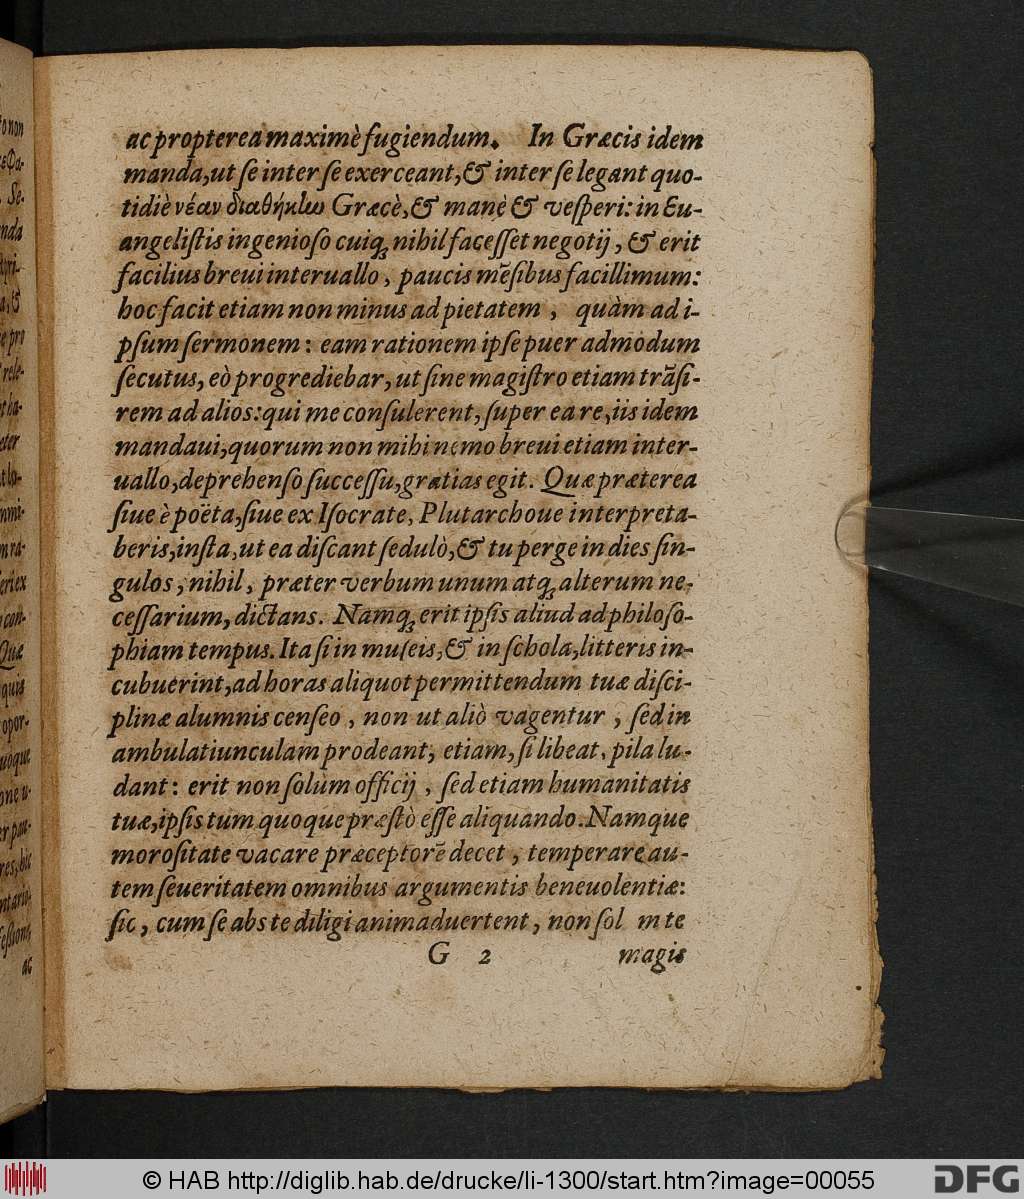 ac propterea maximè fugiendum. In Græcis idem
manda, ut ſe inter ſe exerceant, & inter ſe legant quo-
tidiè νέαν διαθήκην Græcè, & manè & veſperi: in Eu-
angeliſtis ingenioſo cuiq; nihil faceſſet negotij, & erit
facilius breui interuallo, paucis mẽſibus facillimum:
hoc facit etiam non minus ad pietatem, quàm ad i-
pſum ſermonem: eam rationem ipſe puer admodum
ſecutus, eò progrediebar, ut ſine magiſtro etiam trãſi-
rem ad alios: qui me conſulerent, ſuper ea re, iis idem
mandaui, quorum non mihi nemo breui etiam inter-
uallo, deprehenſo ſucceſſu, gratias egit. Quæ præterea
ſiue è poëta, ſiue ex Iſocrate, Plutarchoue interpreta-
beris, inſta, ut ea diſcant ſedulò, & tu perge in dies ſin-
gulos, nihil, præter verbum unum atq; alterum ne-
ceſſarium, dictans. Namq; erit ipſis aliud ad philoſo-
phiam tempus. Ita ſi in muſeis, & in ſchola, litteris in-
cubuerint, ad horas aliquot permittendum tuæ diſci-
plinæ alumnis cenſeo, non ut aliò vagentur, ſed in
ambulatiunculam prodeant, etiam, ſi libeat, pila lu-
dant: erit non ſolùm officij, ſed etiam humanitatis
tuæ, ipſis tum quoque præſtò eſſe aliquando. Namque
moroſitate vacare præceptorẽ decet, temperare au-
tem ſeueritatem omnibus argumentis beneuolentiæ:
ſic, cum ſe abs te diligi animaduertent, non ſol m te
G 2 magis
to non
Se-
nda
&
pro
rele-
ha-
Quæ
quis
opor-
uoque
hic
ac
© HAB http://diglib.hab.de/drucke/li-1300/start.htm?image=00055
DFG